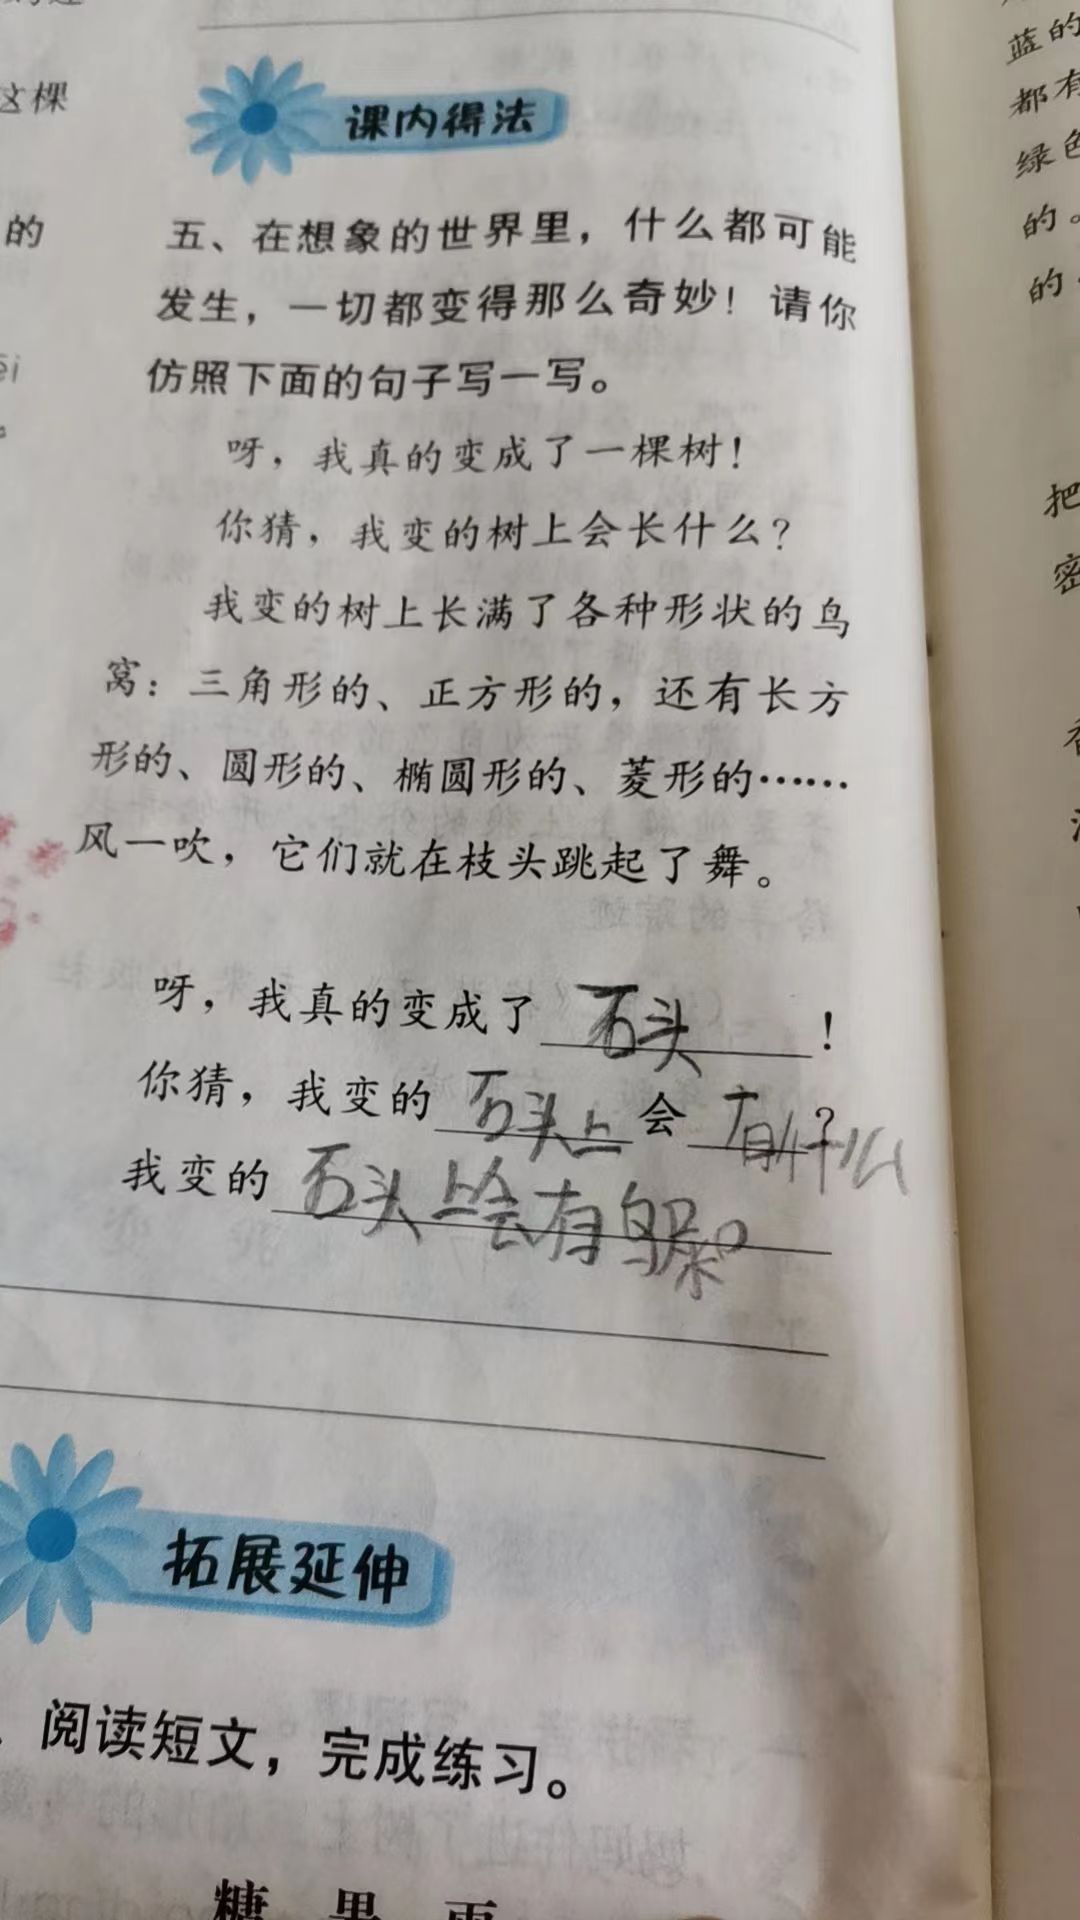 这棵
的
课内得法
五、在想象的世界里，什么都可能
发生，一切都变得那么奇妙！请你
仿照下面的句子写一写。
呀，我真的变成了一棵树！
你猜，我变的树上会长什么？
我变的树上长满了各种形状的鸟
窝：三角形的、正方形的，还有长方
形的、圆形的、椭圆形的、菱形的……
风一吹，它们就在枝头跳起了舞。
呀，我真的变成了 石头 ！
你猜，我变的 石头上 会 有什么？
我变的 石头上会有鸟
拓展延伸
阅读短文，完成练习。
糖果雨
蓝的
都有
绿色
的。
的
把
密